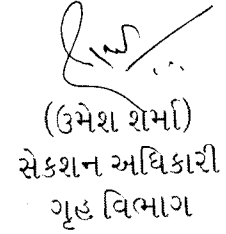 (ઉમેશ શર્મા)
સેકશન અધિકારી
ગૃહ વિભાગ